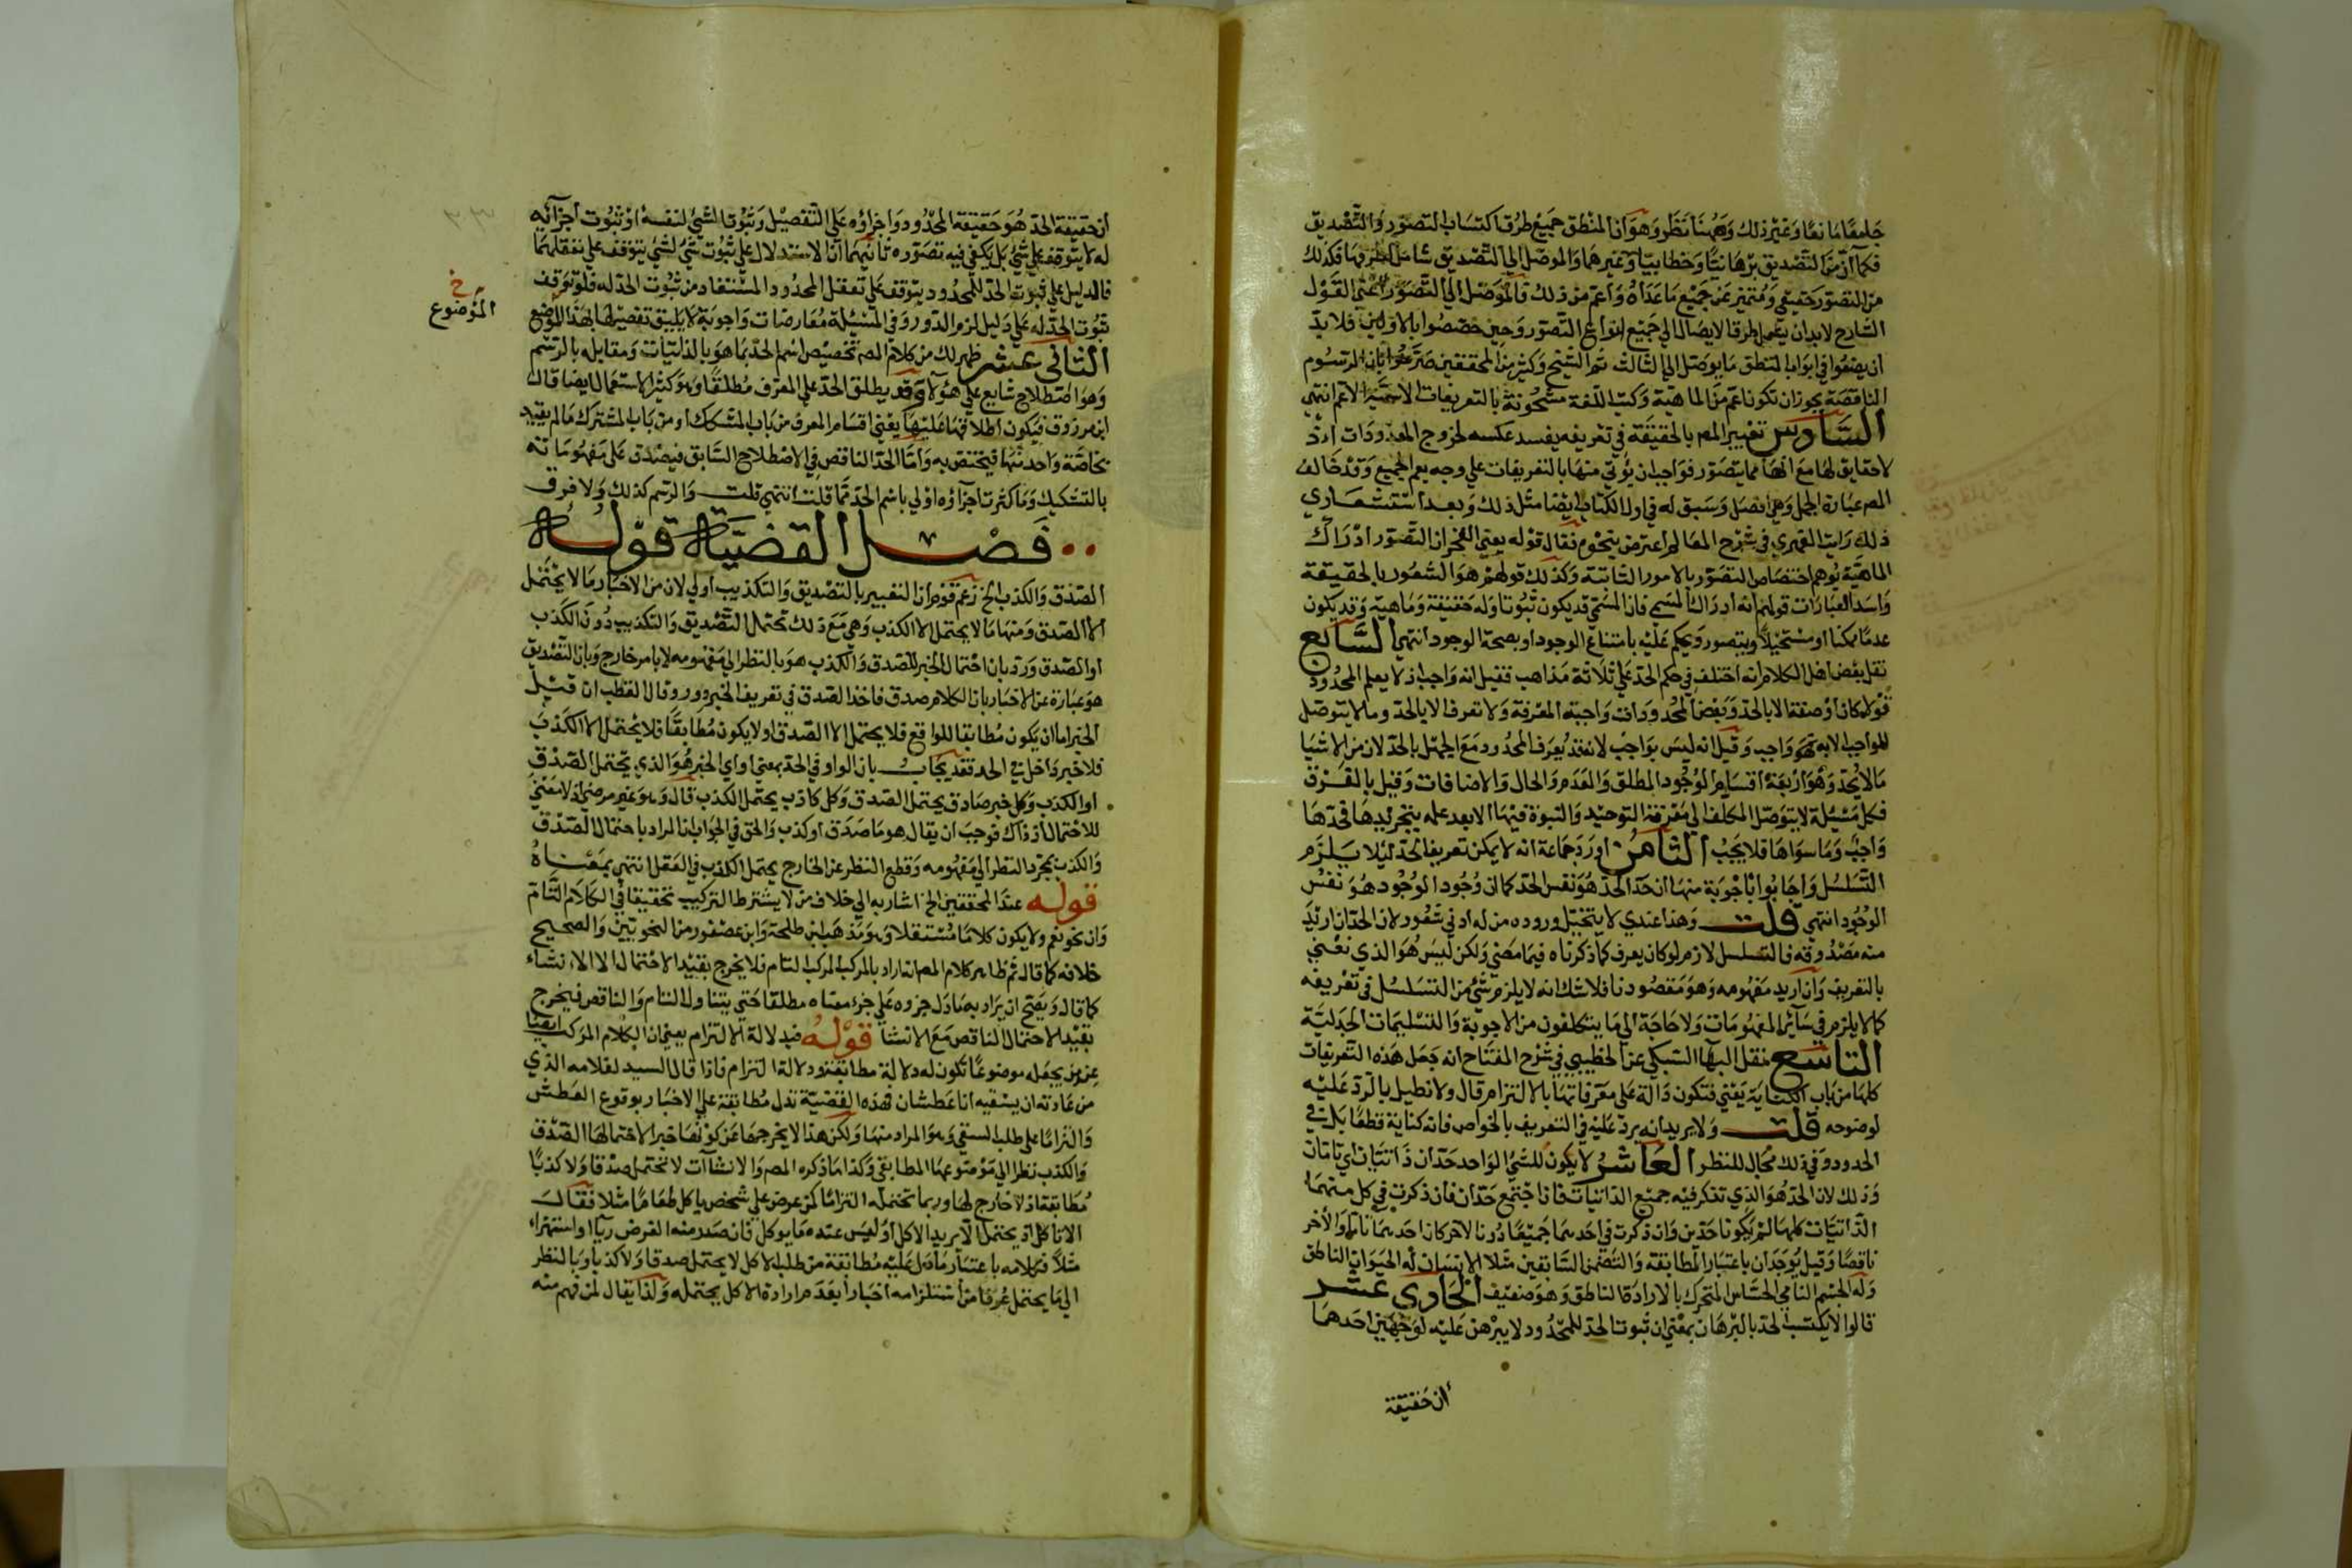 جامعا مانعا وغير ذلك وههنا نظر وهو ان المنطق جميع طرق اكتساب التصور والتصديق
فكما ان من التصديق برهانيا وخطابيا وغيرهما والموصل الي التصديق شامل فكذلك
من التصور حقيقي ومتميز عن جميع ما عداه واعم من ذلك فالموصل الي التصور اعني القول
الشارح لا بد ان يعم طرق الايصال الي جميع انواع التصور وحين خصصوا بالاولين فلا بد
ان يضعوا في ابواب المنطق ما يوصل الي الثالث ثم الشيخ وكثير من المحققين صرحوا بان الرسوم
الناقصة يجوز ان تكون اعم من الماهية وكتب اللغة مشحونة بالتعريفات الاعم انتهي
السادس تعبير المص بالحقيقة في تعريفه يفسد عكسه لخروج المعدومات اذ
لا حقايق لها مع انها مما يتصور فواجب ان يؤتي منها بالتعريفات علي وجه يعم الجميع وقد خالف
المص عبارة الجمل وهي افصل وسبق له في اول الكتاب ايضا مثل ذلك وبعد استشعاري
ذلك رايت الفهري في شرح المعالم اعترض بنحوه فقال قوله يعني الفخر ان التصور ادراك
الماهية يوهم اختصاص التصور بالامور الثابتة وكذلك قولهم هو الشعور بالحقيقة
واسد العبارات قولهم انه ادراك المسمي فان المسمي قد يكون ثبوتا وله حقيقة وماهية وقد يكون
عدما ممكنا او مستحيلا ويتصور ويحكم عليه بامتناع الوجود او بصحة الوجود انتهي السابع
نقل بعض اهل الكلام انه اختلف في حكم الحد علي ثلاثة مذاهب فقيل انه واجب اذ لا يعلم المحدود
قولا كان او صفة الا بالحد وبعض المحدودات واجبة المعرفة ولا تعرف الا بالحد وما لا يتوصل
للواجب الا به فهو واجب وقيل انه ليس بواجب لانه قد يعرف المحدود مع الجهل بالحد لان من الاشيا
ما لا يحد وهو اربعة اقسام الوجود المطلق والعدم والحال والاضافات وقيل بالفرق
فكل مسئلة لا يتوصل المكلف الي معرفة التوحيد والنبوة فيها الا بعد علمه بتحريرها فحدها
واجب وما سواها فلا يجب الثامن اورد جماعة انه لا يمكن تعريف الحد ليلا يلزم
التسلسل واجابوا باجوبة منها ان حد الحد هو نفس الحد كما ان وجود الوجود هو نفس
الوجود انتهي قلت وهذا عندي لا يتخيل وروده من له ادني شعور لان الحد ان اريد
منه مصدوقه فالتسلسل لازم لو كان يعرف كما ذكرناه فيما مضي ولكن ليس هو الذي نعني
بالتعريف وان اريد مفهومه وهو مقصودنا فلا شك انه لا يلزم شي من التسلسل في تعريفه
كما لا يلزم في ساير المفهومات ولا حاجة الي ما يتكلفون من الاجوبة والتسليمات الجدلية
التاسع نقل البها السبكي عن الخطيبي في شرح المفتاح انه جعل هذه التعريفات
كلها من باب الكناية يعني فتكون دالة علي معرفاتها بالالتزام قال ولا نطيل بالرد عليه
لوضوحه قلت ولا يريد انه يرد عليه في التعريف بالخواص فانه كناية قطعا بل في
الحدود وفي ذلك مجال للنظر العاشر لا يكون للشي الواحد حدان ذاتيان اي تامان
وذلك لان الحد هو الذي تذكر فيه جميع الذاتيات فاذا اجتمع حدان فان ذكرت في كل منهما
الذاتيات كلها لم يكونا حدين وان ذكرت في احدهما جميعا دون الاخر كان احدهما تاما والاخر
ناقصا وقيل يوجدان باعتبار المطابقة والتضمن السابقين مثلا الانسان له الحيوان الناطق
وله الجسم النامي الحساس المتحرك بالارادة الناطق وهو ضعيف الحادي عشر
قالوا لا يكتسب الحد بالبرهان بمعني ان ثبوت الحد للمحدود لا يبرهن عليه لوجهين احدهما
ان حقيقة
ان حقيقة الحد هو حقيقة المحدود واجزاؤه علي التفصيل وثبوت الشي لنفسه او ثبوت اجزائه
له لا يتوقف علي شي بل يكفي فيه تصوره ثانيهما ان الاستدلال علي ثبوت شي لشي يتوقف علي تعقلهما
فالدليل علي ثبوت الحد للمحدود يتوقف علي تعقل المحدود المستفاد من ثبوت الحد له فلو توقف
ثبوت الحد له علي دليل لزم الدور وفي المسئلة معارضات واجوبة لا يليق تفصيلها بهذا الموضع
الموضوع خ
الثاني عشر ظهر لك من كلام المص تخصيص اسم الحد بما هو بالذاتيات ومقابله بالرسم
وهو اصطلاح شايع علي هؤلا وقد يطلق الحد علي المعرف مطلقا وهو كثير الاستعمال ايضا قال
ابن مرزوق فيكون اطلاقها عليها يعني اقسام المعرف من باب المشكك او من باب المشترك ما لم يقيد
بخاصة واحد منها فيختص به واما الحد الناقص في الاصطلاح السابق فيصدق علي مفهوماته
بالتشكيك وما كثرت اجزاؤه اولي باسم الحد مما قلت انتهي قلت والرسم كذلك ولا فرق
فصل القضية قوله
الصدق والكذب الخ زعم قوم ان التعبير بالتصديق والتكذيب اولي لان من الاخبار ما لا يحتمل
الا الصدق ومنها ما لا يحتمل الا الكذب وهي مع ذلك تحتمل التصديق والتكذيب دون الكذب
او الصدق ورد بان احتمال الخبر للصدق والكذب هو بالنظر الي مفهومه لا بامر خارج وبان التصديق
هو عبارة عن الاخبار بان الكلام صدق فاخذ الصدق في تعريف الخبر دور وقال القطب ان قيل
الخبر اما ان يكون مطابقا للواقع فلا يحتمل الا الصدق او لا يكون مطابقا فلا يحتمل الا الكذب
فلا خبر داخل في الحد فقد يجاب بان الواو في الحد بمعني او اي الخبر هو الذي يحتمل الصدق
او الكذب وكل خبر صادق يحتمل الصدق وكل كاذب يحتمل الكذب قال وهو غير مرضي اذ لا معني
للاحتمال اذ ذاك فوجب ان يقال هو ما صدق او كذب والحق في الجواب ان المراد باحتمال الصدق
والكذب بمجرد النظر الي مفهومه وقطع النظر عن الخارج يحتمل الكذب في العقل انتهي بمعناه
قوله عند المحققين الخ اشار به الي خلاف من لا يشترط التركيب تحقيقا في الكلام التام
وان نحو نعم ولا يكون كلاما مستقلا وهو مذهب ابن طلحة وابن عصفور من النحويين والصحيح
خلافه كما قال ثم ظاهر كلام المص انه اراد بالمركب المركب التام فلا يخرج بقيد الاحتمال الا الانشاء
كما قال ويصح ان يراد به ما دل جزوه علي جزء معناه مطلقا حتي يتناول التام والناقص فيخرج
بقيد الاحتمال الناقص مع الانشا قوله فبدلالة الالتزام يعني ان الكلام المركب ايضا
عن من يجعله موضوعا تكون له دلالة مطابقة ودلالة التزام فاذا قال السيد لغلامه الذي
من عادته ان يسقيه انا عطشان فهذه القضية تدل مطابقة علي الاخبار بوقوع العطش
والتزاما علي طلب السقي وهو المراد منها ولكن هذا لا يخرجها عن كونها خبرا لاحتمالها الصدق
والكذب نظرا الي موضوعها المطابقي وكذا ما ذكره المص والانشاآت لا تحتمل صدقا ولا كذبا
مطابقة اذ لا خارج لها وربما تحتمله التزاما كمن عرض علي شخص ياكل طعاما مثلا فقال
الا تاكل اذ يحتمل ان يريد الاكل او ليس عنده ما يوكل فان صدر منه العرض ريا او استهزاء
مثلا فكلامه باعتبار ما دل عليه مطابقة من طلب الاكل لا يحتمل صدقا ولا كذبا وبالنظر
الي ما يحتمل عرفا من استلزامه اخبارا بعدم ارادة الاكل يحتمله ولذا يقال لمن فهم منه